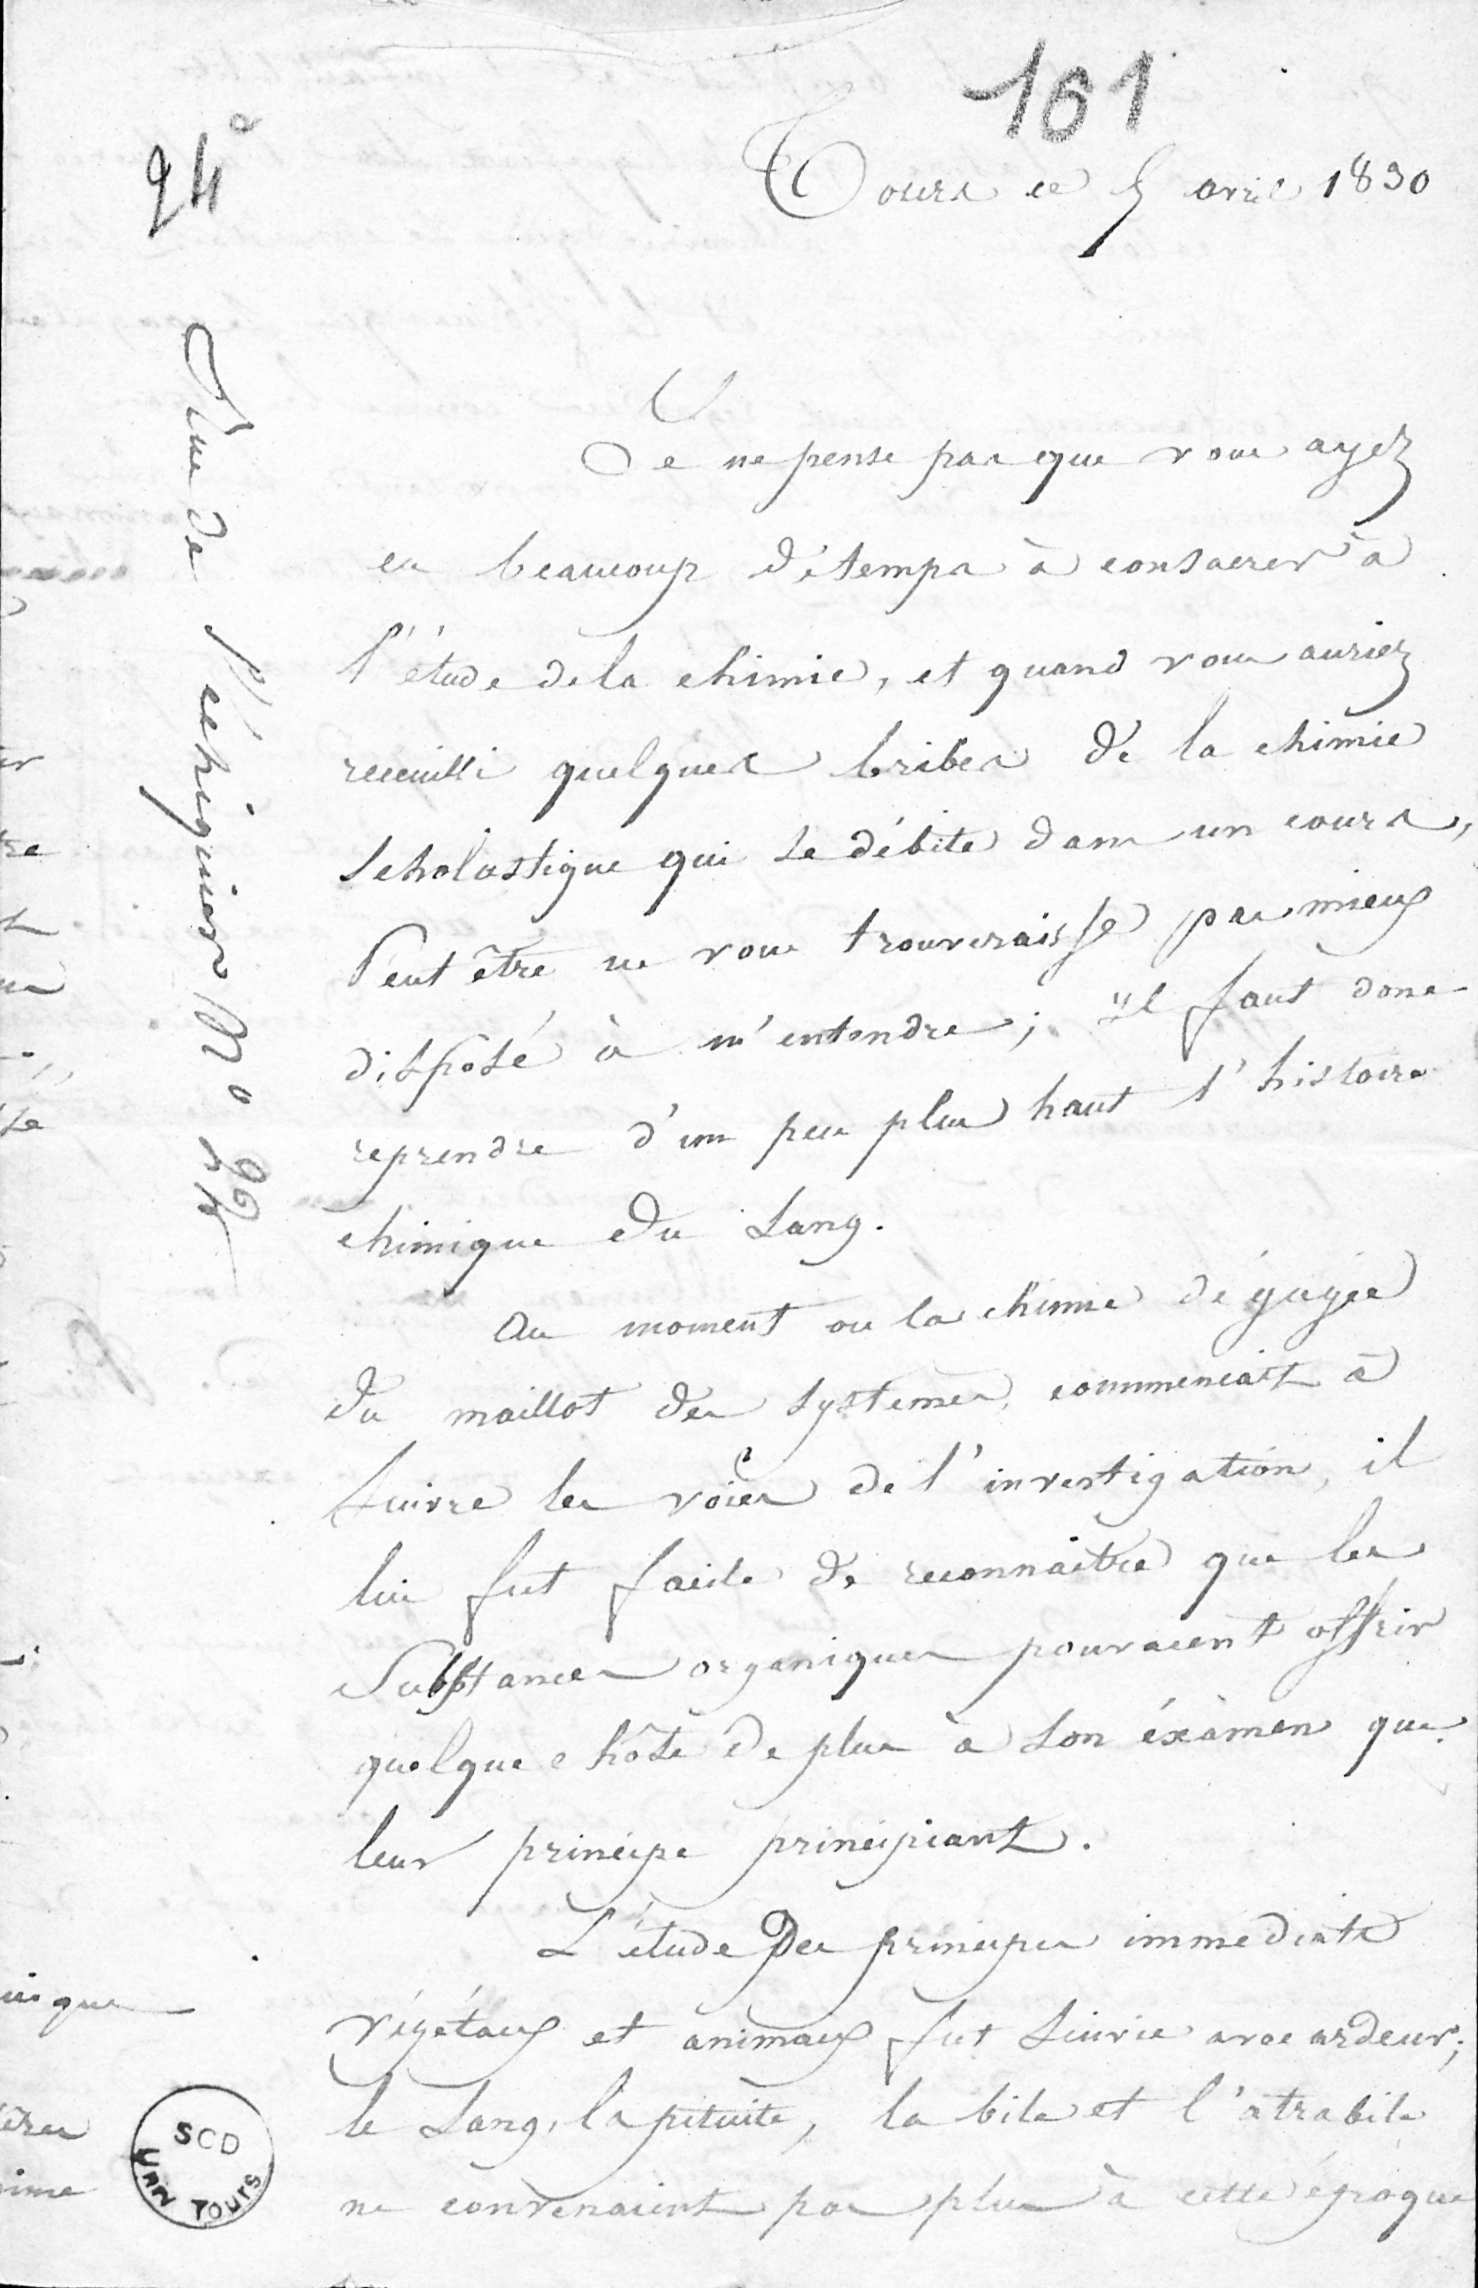 161
94
Tours ce 5 avril 1830
Rue de l'échiquier N° 22
Je ne pense pas que vous ayez
eu beaucoup de temps à consacrer à
l'étude de la chimie, et quand vous auriez
recueilli quelques bribes de la chimie
scholastique qui se débite dans un cours,
Peut être ne vous trouverais je pas mieux
disposé à m'entendre; il faut donc
reprendre d'un peu plus haut l'histoire
chimique du sang.
Au moment ou la chimie dégagée
du maillot des systemes, commencait à
suivre les voies de l'investigation, il
lui fut facile de reconnaître que les
substances organiques pouvaient offrir
quelque chôse de plus à son éxàmen que
leur principe principiant.
L'étude Des principes immediats
végétaux et animaux fut suivie avec ardeur;
le sang, la pituite, la bile et l'atrabile
ne convenaient pas plus à cette époque
SCD
UNIV TOURS